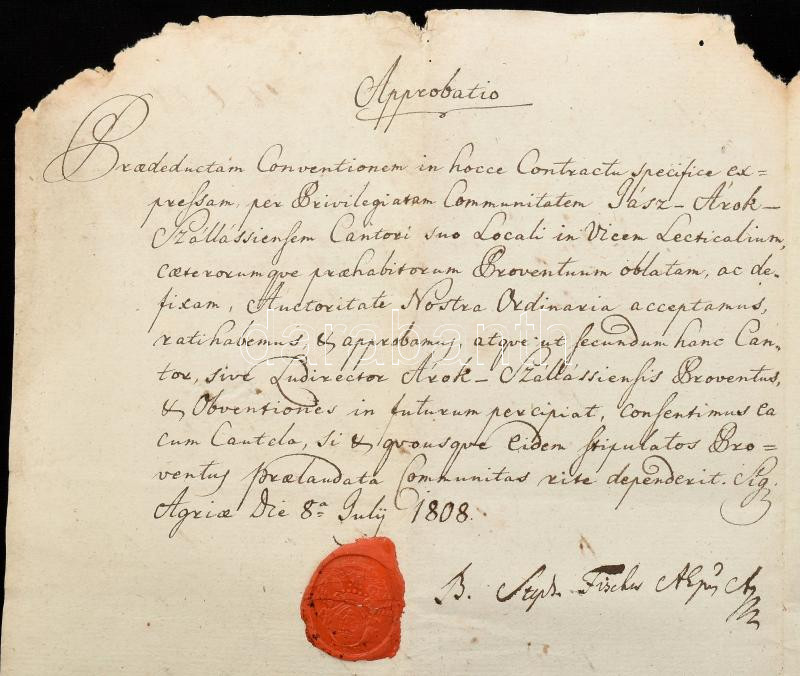 Approbatio
Prædeductam Conventionem in hocce Contractu specifice ex=
pressam, per Privilegiatam Communitatem Jász-Árok-
Szállássiensem Cantori suo Locali in Vicem Lecticalium,
cæterorumqve præhabitorum Proventuum oblatam, ac de-
fixam, Auctoritate Nostra Ordinaria acceptamus,
ratihabemus, & approbamus, atqve ut secundum hanc Can-
tor, sive Ludirector Árok-Szállássiensis Proventus,
& Obventiones in futurum percipiat, consentimus ea
cum Cautela, si & qvousqve eidem stipulatos Pro=
ventus prælaudata Communitas rite dependerit. Sig.
Agriæ Die 8ª Julij 1808.
B. Steph. Fischer AEpus
darabanth